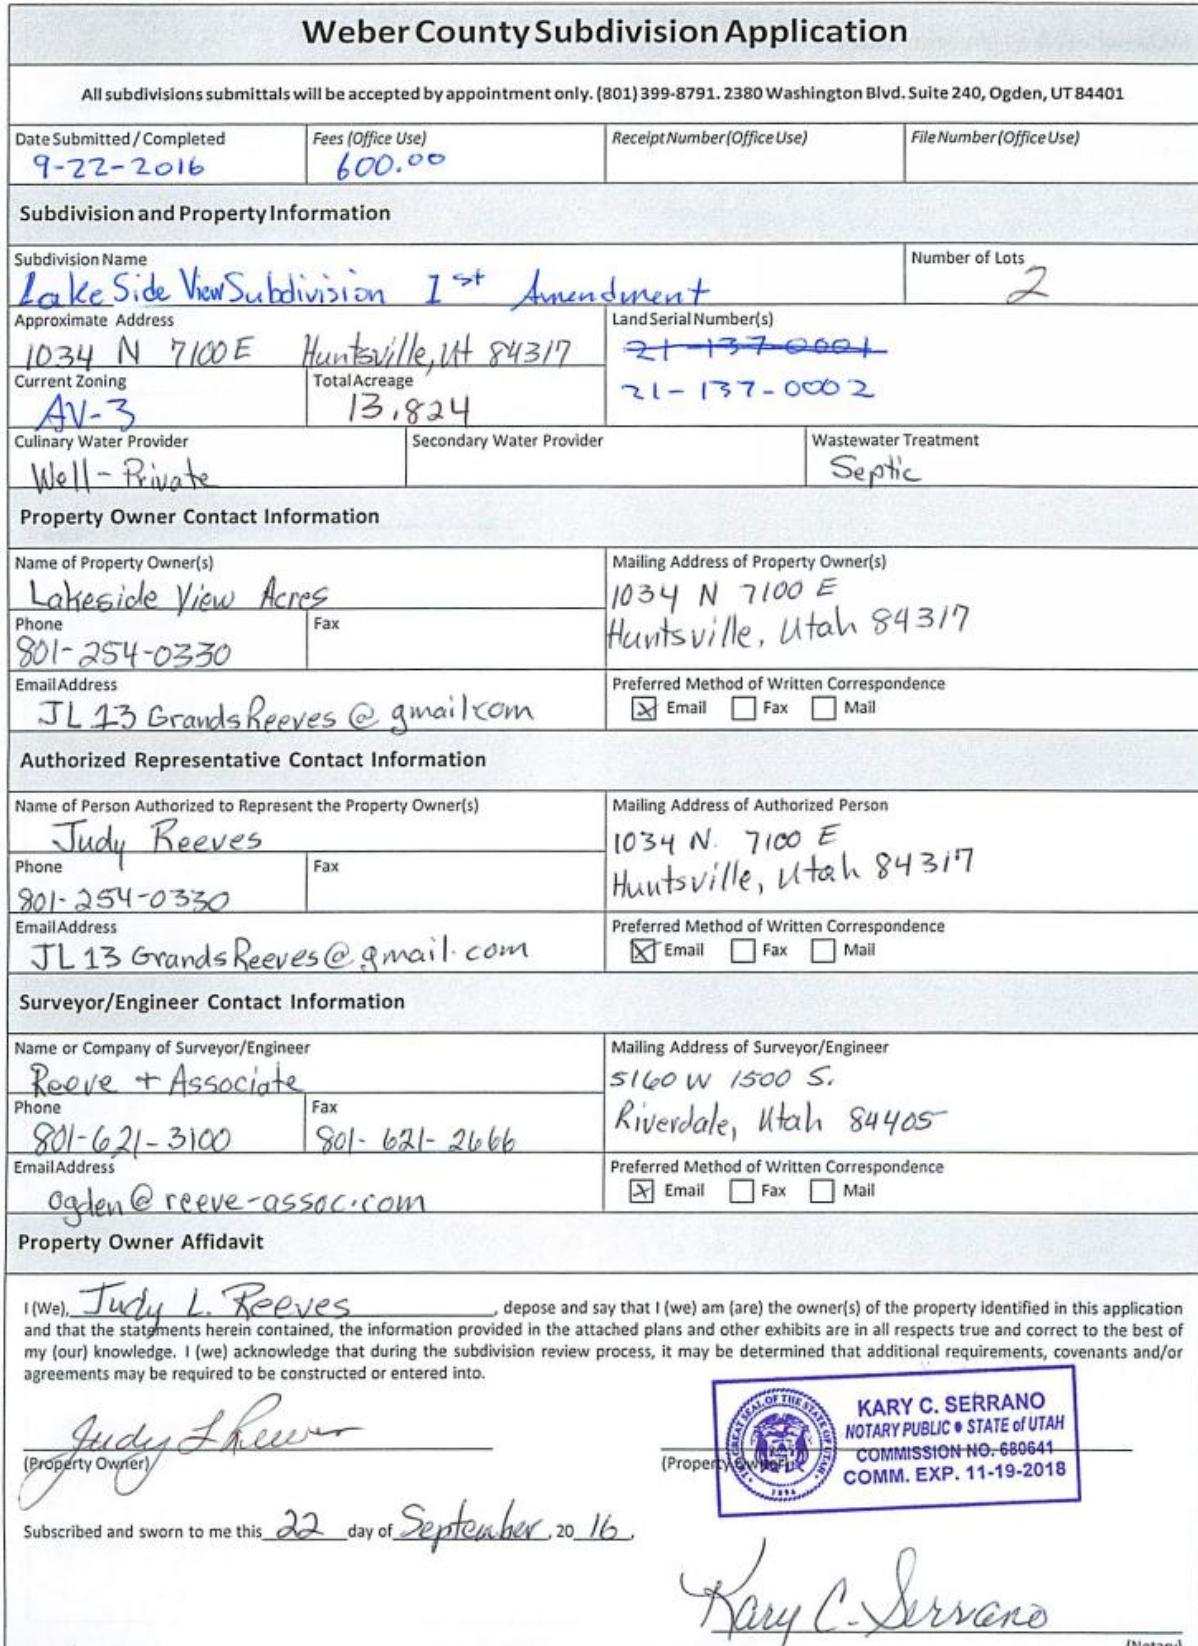 Weber County Subdivision Application
All subdivisions submittals will be accepted by appointment only. (801) 399-8791. 2380 Washington Blvd. Suite 240, Ogden, UT 84401
Date Submitted / Completed
9-22-2016
Fees (Office Use)
600.00
Receipt Number (Office Use)
File Number (Office Use)
Subdivision and Property Information
Subdivision Name
Lake Side View Subdivision 1st Amendment
Number of Lots
2
Approximate Address
1034 N 7100 E Huntsville, Ut 84317
Land Serial Number(s)
21-137-0001
21-137-0002
Current Zoning
AV-3
Total Acreage
13.824
Culinary Water Provider
Well - Private
Secondary Water Provider
Wastewater Treatment
Septic
Property Owner Contact Information
Name of Property Owner(s)
Lakeside View Acres
Mailing Address of Property Owner(s)
1034 N 7100 E
Huntsville, Utah 84317
Phone
801-254-0330
Fax
Email Address
JL13GrandsReeves@gmail.com
Preferred Method of Written Correspondence
Email Fax Mail
Authorized Representative Contact Information
Name of Person Authorized to Represent the Property Owner(s)
Judy Reeves
Mailing Address of Authorized Person
1034 N. 7100 E
Huntsville, Utah 84317
Phone
801-254-0330
Fax
Email Address
JL13GrandsReeves@gmail.com
Preferred Method of Written Correspondence
Email Fax Mail
Surveyor/Engineer Contact Information
Name or Company of Surveyor/Engineer
Reeve + Associate
Mailing Address of Surveyor/Engineer
5160 W 1500 S.
Riverdale, Utah 84405
Phone
801-621-3100
Fax
801-621-2666
Email Address
ogden@reeve-assoc.com
Preferred Method of Written Correspondence
Email Fax Mail
Property Owner Affidavit
I (We), Judy L. Reeves, depose and say that I (we) am (are) the owner(s) of the property identified in this application
and that the statements herein contained, the information provided in the attached plans and other exhibits are in all respects true and correct to the best of
my (our) knowledge. I (we) acknowledge that during the subdivision review process, it may be determined that additional requirements, covenants and/or
agreements may be required to be constructed or entered into.
Judy L Reeves
(Property Owner)
(Property Owner)
THE GREAT SEAL OF THE STATE OF UTAH
1896
KARY C. SERRANO
NOTARY PUBLIC • STATE of UTAH
COMMISSION NO. 680641
COMM. EXP. 11-19-2018
Subscribed and sworn to me this 22 day of September, 20 16.
Kary C. Serrano
(Notary)